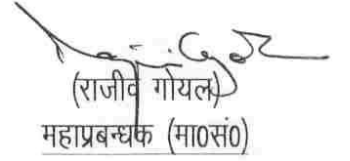 (राजीव गोयल)
महाप्रबन्धक (मा0सं0)